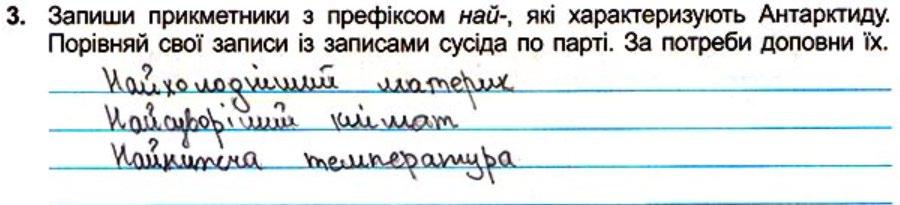 3. Запиши прикметники з префіксом най-, які характеризують Антарктиду.
Порівняй свої записи із записами сусіда по парті. За потреби доповни їх.
Найхолодніший материк
Найсуворіший клімат
Найнижча температура